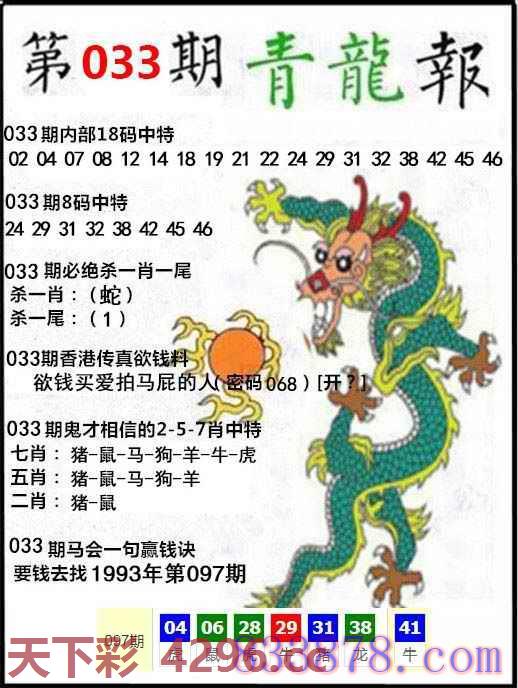 第033期青龍報
033期内部18码中特
02 04 07 08 12 14 18 19 21 22 24 29 31 32 38 42 45 46
033期8码中特
24 29 31 32 38 42 45 46
033期必绝杀一肖一尾
杀一肖：（蛇）
杀一尾：（1）
033期香港传真欲钱料
欲钱买爱拍马屁的人（密码068）[开？]
033期鬼才相信的2-5-7肖中特
七肖：猪-鼠-马-狗-羊-牛-虎
五肖：猪-鼠-马-狗-羊
二肖：猪-鼠
033期马会一句赢钱诀
要钱去找1993年第097期
097期 04 06 28 29 31 38 41
虎 鼠 虎 牛 猪 龙 牛
天下彩 4296.cc